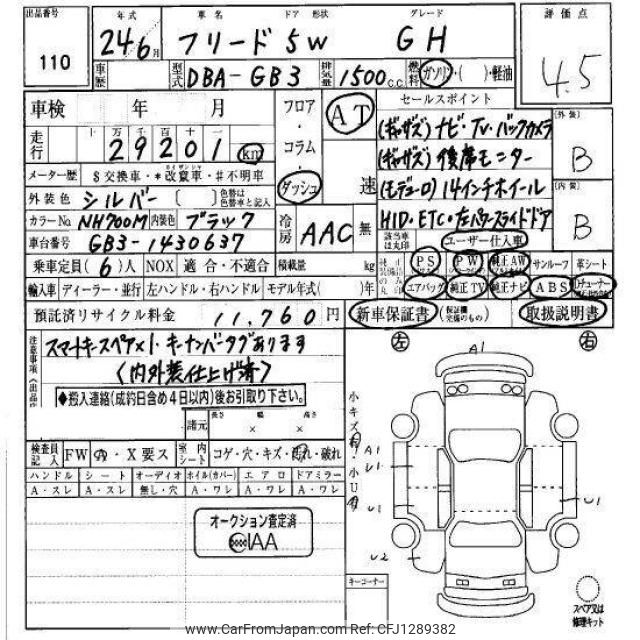 出品番号
110
年式 車名 ドア 形状 グレード
24 6月 フリード 5W GH
評価点
4.5
車歴 型式 DBA-GB3 排気量 1500c.c. 燃料 ガソリン・( )・軽油
車検 年 月
フロア・コラム・ダッシュ
AT 速
セールスポイント
(ギャザズ)ナビ・TV・バックカメラ
(ギャザズ)後席モニター
(モデューロ)14インチホイール
HID・ETC・左パワースライドドア
外装
B
内装
B
走行 十 万 千 百 十 一
29201 km
メーター歴 $交換車・*改竄車・#不明車
外装色 シルバー [ ] 色替は色替車と記入
カラーNo. NH700M 内装色 ブラック
冷房 AAC 無
車台番号 GB3-1430637
該当車は丸印 ユーザー仕入車
乗車定員(6)人 NOX 適合・不適合 積載量 kg
PS PW 純正AW サンルーフ 革シート
輸入車 ディーラー・並行 左ハンドル・右ハンドル モデル年式( )年
エアバッグ 純正TV 純正ナビ ABS
預託済リサイクル料金 11,760円
新車保証書 (保証欄完備のもの) 取扱説明書
注意事項
スマートキースペア×1・キーナンバータグあります
(内外装仕上げ済)
◆搬入連絡(成約日含め4日以内)後お引取り下さい。
諸元 長さ 幅 高さ
左 右
A1
小キズ有・小U有
A1
U1
U1
U1
U2
検査員記入 FW Ⓐ・X要ス 室内シート コゲ・穴・キズ・汚れ・破れ
ハンドル シート オーディオ ホイル(カバー) エアロ ドアミラー
A・スレ A・スレ 無し・穴 A・ワレ A・ワレ A・ワレ
オークション査定済
IAA
キーコーナー
スペア又は
修理キット
www.CarFromJapan.com Ref: CFJ1289382